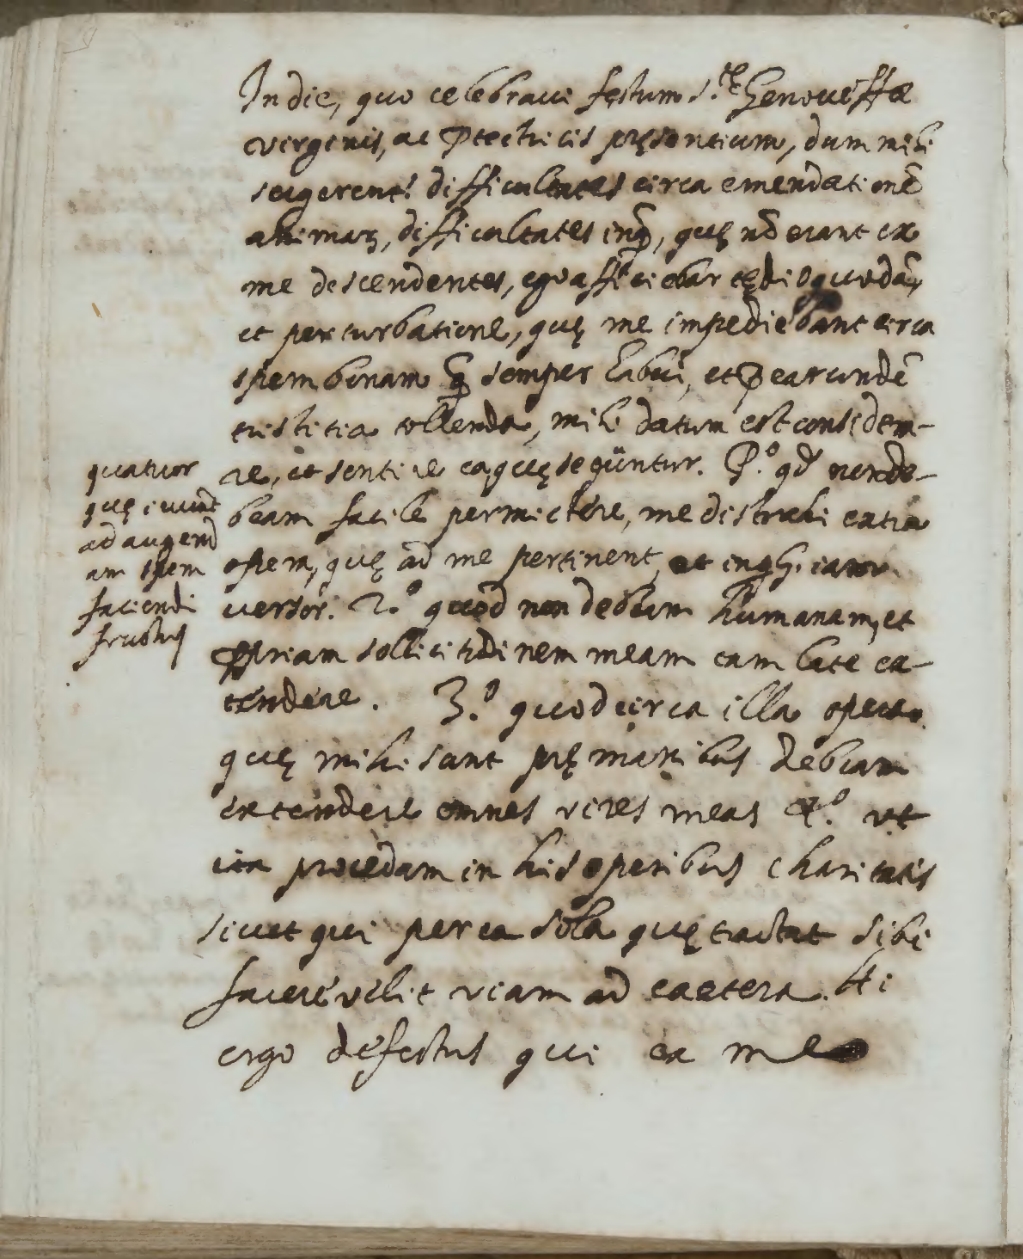 In die, quo celebraui festum S.te Genoueffæ
vergenis, ac ꝓtectricis pręsentium, dum mihi
sugerent' difficultates circa emendationē
animaꝝ, difficultates inq̃, quę nō erant ex
me descendentes, ego afficiebar tędio quodā,
et perturbatione, quę me impediebant circa
spem bonam q̃ semper habui, et ꝓ earundē
tristitia tollenda, mihi datum est considera-
re, et sentire ea quę sequntur. P.º qd̃ non de-
beam facile permictere, me distrahi extra
opera, quę ad me pertinent, et in
versor. 2.º quod non debeam humanam, et
ꝓpriam sollicitudinem meam tam late ex-
tendere. 3.º quod circa illa opera
quę mihi sunt pręmanibus debeam
extendere omnes vires meas 4.º ut
ita procedam in his operibus charitatis
sicut qui per ea sola quę tractat sibi
facere velit viam ad caetera. Hi
ergo defectus qui ex me
quatuor
quę iuuant
ad augend
am spem
faciendi
fructus